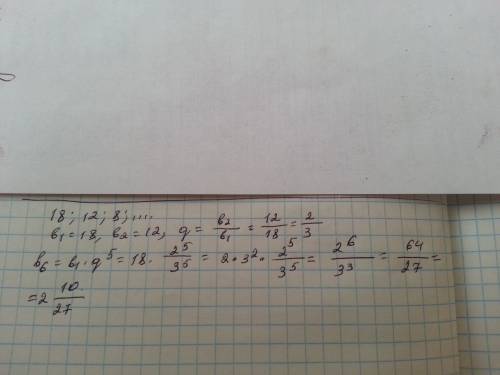 18; 12; 8; ....
b₁ = 18, b₂ = 12, q = b₂/b₁ = 12/18 = 2/3
b₆ = b₁ · q⁵ = 18 · 2⁵/3⁵ = 2 · 3² · 2⁵/3⁵ = 2⁶/3³ = 64/27 =
= 2 10/27